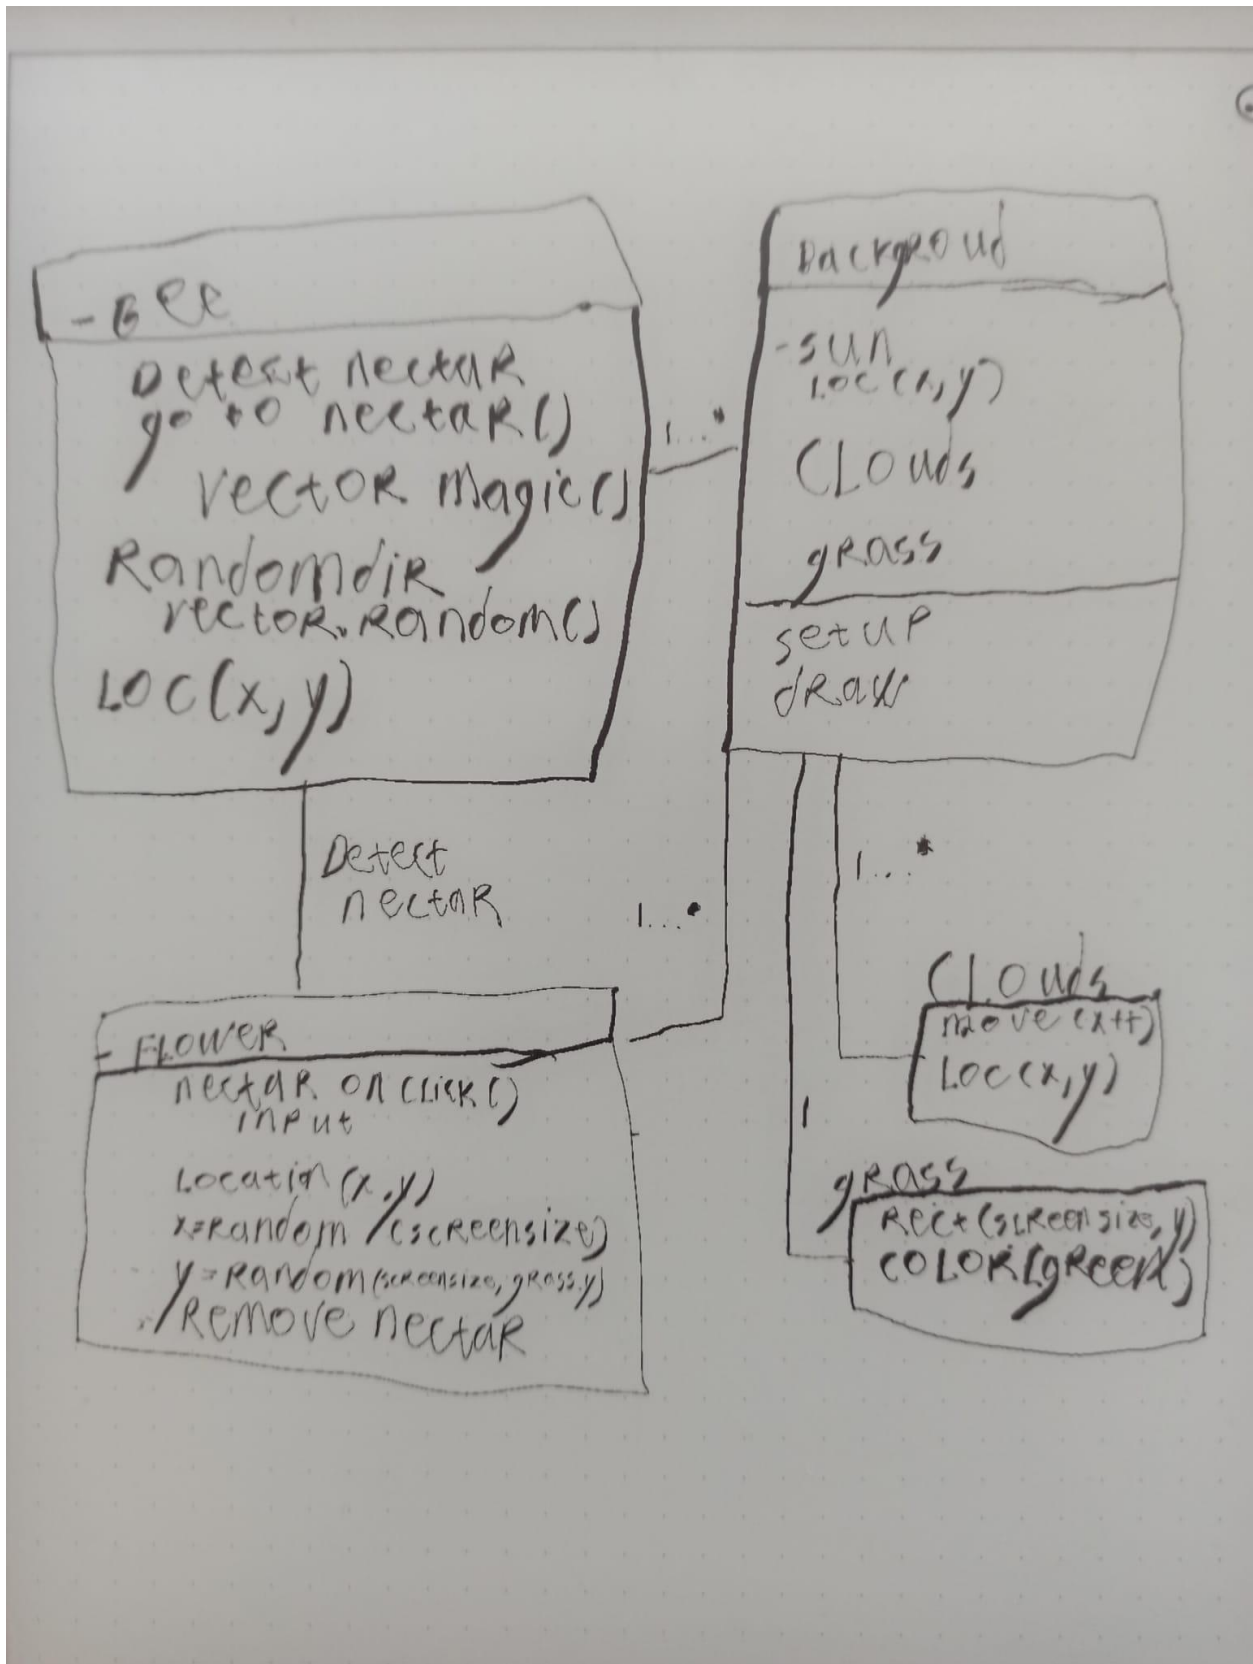 - Bee
Detect nectar
go to nectar()
vector magic()
Randomdir
vector.random()
LOC(x,y)
1...*
Backgroud
- sun
LOC(x,y)
CLOuds
grass
setup
draw
Detect
nectar
1...*
1...*
1
- FLOWER
nectar on click()
input
Location(x,y)
x=random (screensize)
y=random(screensize, grass.y)
Remove nectar
CLOuds
move (x++)
LOC(x,y)
grass
Rect(screensize, y)
COLOR(green)